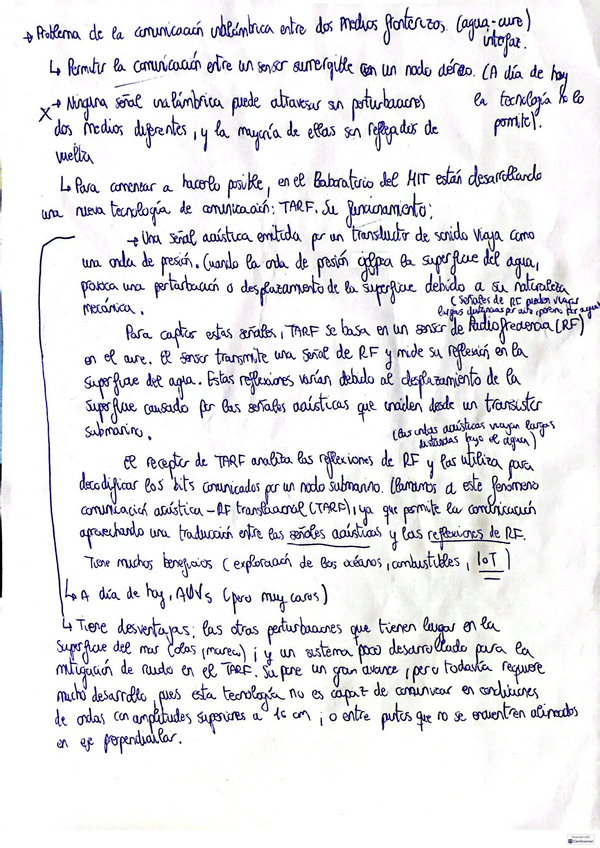 → Problema de la comunicación inalámbrica entre dos medios fronterizos. (agua-aire)
interfaz.
↳ Permitir la comunicación entre un sensor sumergible con un nodo aéreo. (A día de hoy
la tecnología no lo
permite).
X → Ninguna señal inalámbrica puede atravesar sin perturbaciones
dos medios diferentes, y la mayoría de ellas son reflejadas de
vuelta
↳ Para comenzar a hacerlo posible, en el Laboratorio del MIT están desarrollando
una nueva tecnología de comunicación: TARF. Su funcionamiento:
→ Una señal acústica emitida por un transductor de sonido viaja como
una onda de presión. Cuando la onda de presión golpea la superficie del agua,
provoca una perturbación o desplazamiento de la superficie debido a su naturaleza
mecánica.
(señales de RF pueden viajar
largas distancias por aire, por agua)
Para captar estas señales, TARF se basa en un sensor de Radiofrecuencia (RF)
en el aire. El sensor transmite una señal de RF y mide su reflexión en la
superficie del agua. Estas reflexiones varían debido al desplazamiento de la
superficie causado por las señales acústicas que inciden desde un transistor
submarino.
(Las ondas acústicas viajan largas
distancias bajo el agua)
El receptor de TARF analiza las reflexiones de RF y las utiliza para
decodificar los bits comunicados por un nodo submarino. Llamamos a este fenómeno
comunicación acústica-RF translacional (TARF), ya que permite la comunicación
aprovechando una traducción entre las señales acústicas y las reflexiones de RF.
Tiene muchos beneficios (exploración de los océanos, combustibles, IoT)
↳ A día de hoy, AUVs (pero muy caros)
↳ Tiene desventajas: las otras perturbaciones que tienen lugar en la
superficie del mar (olas, marea) ; y un sistema poco desarrollado para la
mitigación de ruido en el TARF. Supone un gran avance, pero todavía requiere
mucho desarrollo pues esta tecnología no es capaz de comunicar en condiciones
de ondas con amplitudes superiores a 16 cm ; o entre puntos que no se encuentren alineados
en eje perpendicular.
CamScanner